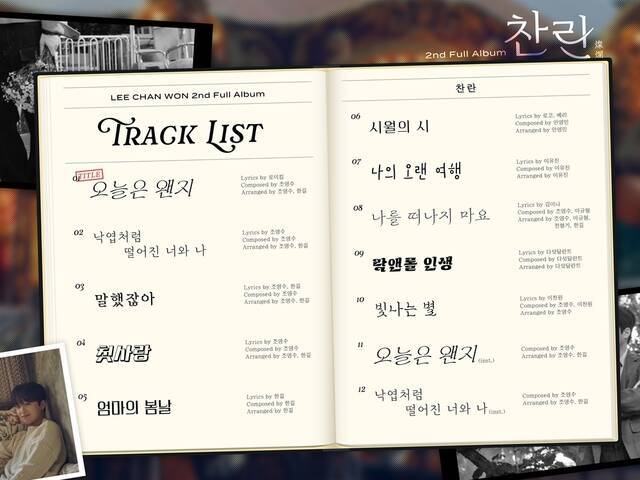 2nd Full Album 찬란 燦爛
LEE CHAN WON 2nd Full Album
TRACK LIST
01 TITLE 오늘은 왠지
Lyrics by 로이킴
Composed by 조영수
Arranged by 조영수, 한길
02 낙엽처럼
떨어진 너와 나
Lyrics by 조영수
Composed by 조영수
Arranged by 조영수, 한길
03 말했잖아
Lyrics by 조영수, 한길
Composed by 조영수, 한길
Arranged by 조영수, 한길
04 첫사랑
Lyrics by 조영수, 한길
Composed by 조영수
Arranged by 조영수, 한길
05 엄마의 봄날
Lyrics by 한길
Composed by 한길
Arranged by 한길
찬란
06 시월의 시
Lyrics by 로코베리
Composed by 안영민
Arranged by 안영민
07 나의 오랜 여행
Lyrics by 이유진
Composed by 이유진
Arranged by 이유진
08 나를 떠나지 마요
Lyrics by 김이나
Composed by 조영수, 이규형
Arranged by 조영수, 이규형,
전형기, 한길
09 락앤롤 인생
Lyrics by 다섯달란트
Composed by 다섯달란트
Arranged by 다섯달란트
10 빛나는 별
Lyrics by 이찬원
Composed by 조영수, 이찬원
Arranged by 조영수
11 오늘은 왠지 (inst.)
Composed by 조영수
Arranged by 조영수, 한길
12 낙엽처럼
떨어진 너와 나 (inst.)
Composed by 조영수
Arranged by 조영수, 한길